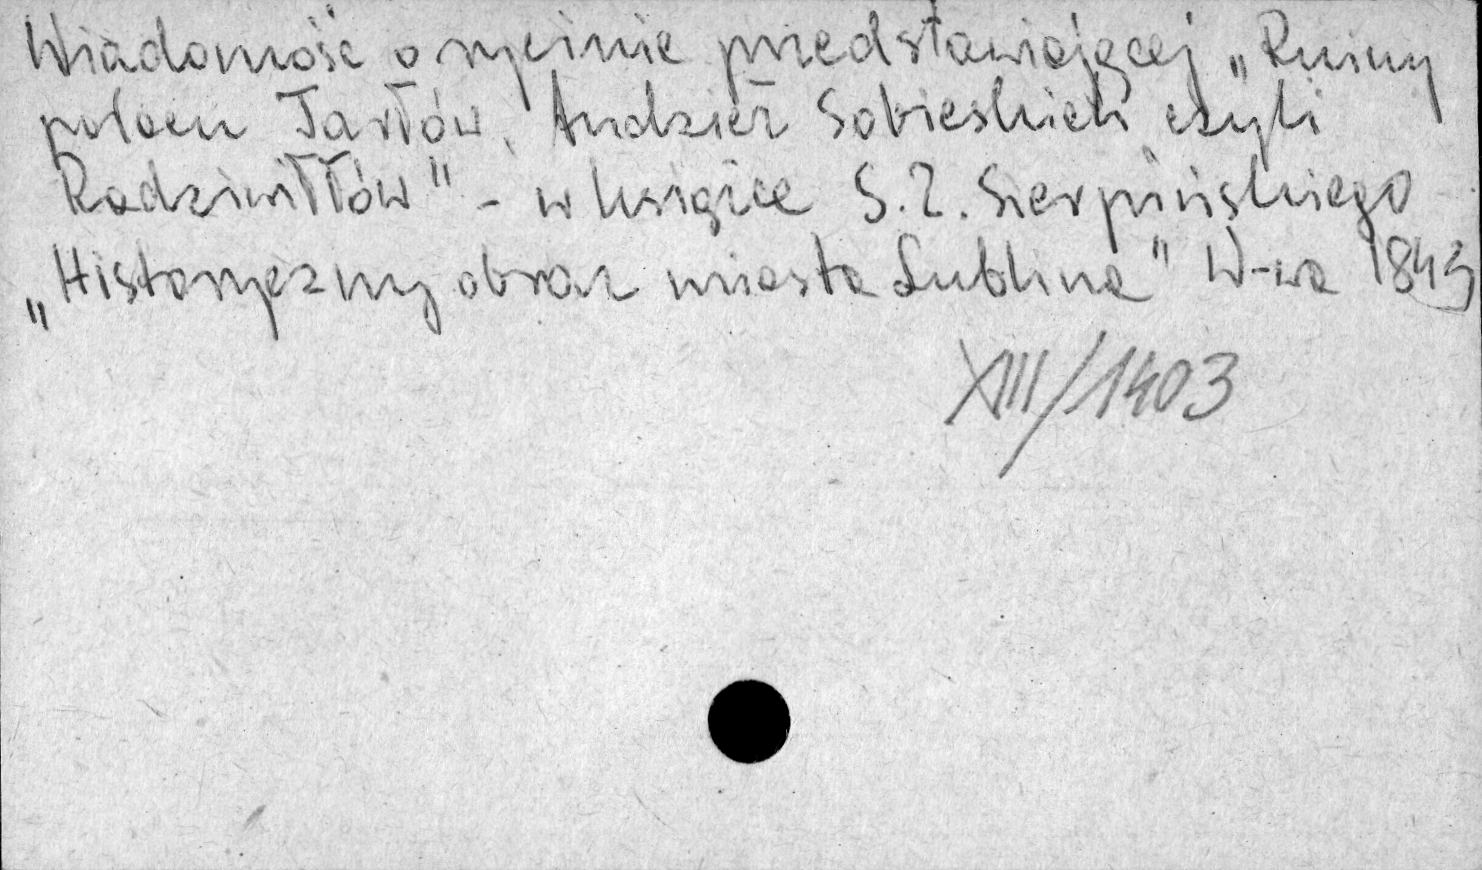 Wiadomość o rycinie przedstawiającej „Ruiny
pałacu Tarłów, Andzież Sobieskich czyli
Radziwiłłów" - w książce S. Z. Sierpińskiego
„Historyczny obraz miasta Lublina" W-wa 1843
XIII/1403